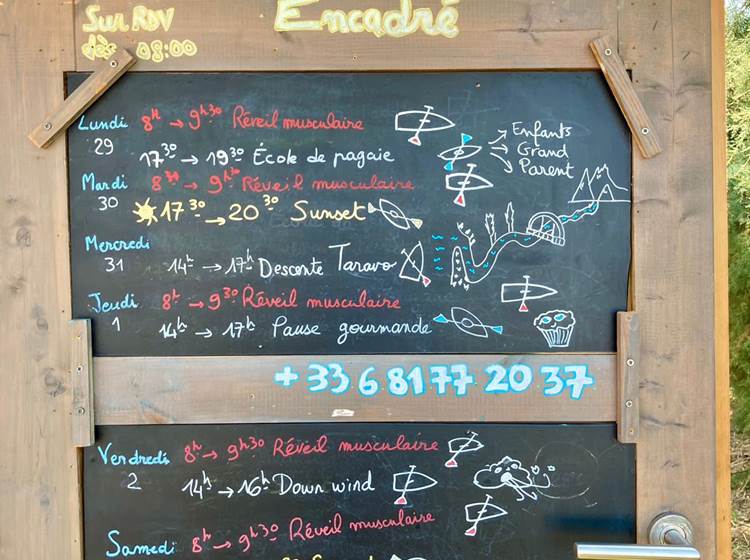 Sur RDV
dès 08:00
Encadré
Lundi 8h → 9h30 Réveil musculaire
29 17 30 → 19 30 École de pagaie
Enfants
Grand
Parent
Mardi 8 30 → 9h30 Réveil musculaire
30 17 30 → 20 30 Sunset
Mercredi
31 14h → 17h Descente Taravo
Jeudi 8h → 9 30 Réveil musculaire
1 14h → 17h Pause gourmande
+33 6 81 77 20 37
Vendredi 8h → 9h30 Réveil musculaire
2 14h → 16h Down wind
Samedi 8h → 9h30 Réveil musculaire